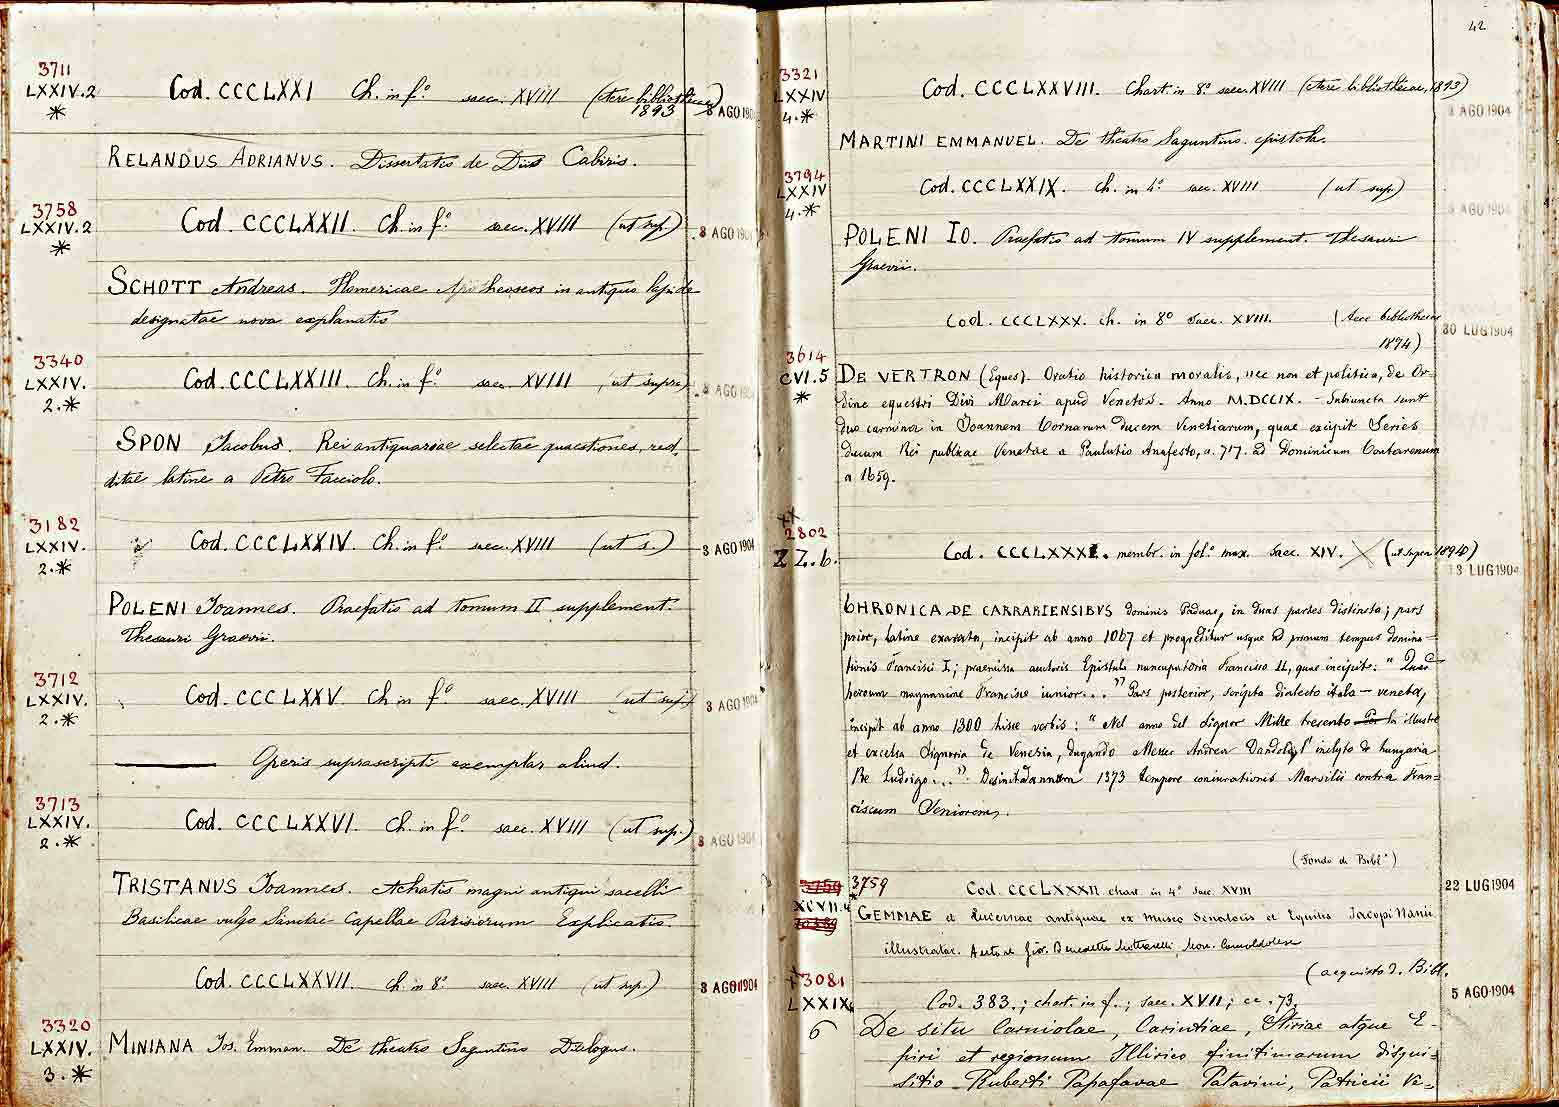 3711
LXXIV.2
*
Cod. CCCLXXI Ch. in f.º saec. XVIII (Aere bibliothecae
1893)
8 AGO 1904
RELANDUS ADRIANUS. Dissertatio de Diis Cabiris.
3758
LXXIV.2
*
Cod. CCCLXXII Ch. in f.º saec. XVIII (ut sup.)
8 AGO 1904
SCHOTT Andreas. Homericae Apotheoseos in antiquo lapide
designatae nova explanatio
3340
LXXIV.
2.*
Cod. CCCLXXIII. Ch. in f.º saec. XVIII (ut supra)
8 AGO 1904
SPON Jacobus. Rei antiquariae selectae quaestiones, red,
ditae latine a Petro Facciolo.
3182
LXXIV.
2.*
Cod. CCCLXXIV. Ch. in f.º saec. XVIII (ut s.)
8 AGO 1904
POLENI Joannes. Praefatio ad tomum II supplement.
Thesauri Graevii.
3712
LXXIV.
2.*
Cod. CCCLXXV Ch in f.º saec. XVIII (ut sup.)
8 AGO 1904
Operis suprascripti exemplar aliud.
3713
LXXIV.
2.*
Cod. CCCLXXVI. Ch. in f.º saec. XVIII (ut sup.)
8 AGO 1904
TRISTANUS Joannes. Achatis magni antiqui sacelli
Basilicae vulgo Sanctae Capellae Parisiorum Explicatio.
Cod. CCCLXXVII. Ch. in 8º saec. XVIII (ut sup.)
8 AGO 1904
3320
LXXIV.
3.*
MINIANA Jos. Emman. De theatro Saguntino Dialogus.
42
3321
LXXIV
4.*
Cod. CCCLXXVIII. Chart. in 8º saec. XVIII (Aere bibliothecae, 1893)
8 AGO 1904
MARTINI EMMANUEL. De theatro Saguntino. epistola.
3794
LXXIV
4.*
Cod. CCCLXXIX. ch. in 4º saec. XVIII (ut sup.)
8 AGO 1904
POLENI IO. Praefatio ad tomum IV supplement. Thesauri
Graevii.
Cod. CCCLXXX. ch. in 8º saec. XVIII. (Aere bibliothecae
1894)
30 LUG 1904
3614
CVI.5
*
DE VERTRON (Eques). Oratio historica moralis, nec non et politica, de Or-
dine equestri Divi Marci apud Venetos. Anno M.DCCIX. - Subiuncta sunt
duo carmina in Joannem Cornarum ducem Venetiarum, quae excipit Series
ducum Rei publicae Venetae a Paulutio Anafesto, a. 717. ad Dominicum Contarenum
a 1659.
2802
ZZ.6.
Cod. CCCLXXXI. membr. in fol.º max. saec. XIV. (ut supra 1894)
13 LUG 1904
CHRONICA DE CARRARIENSIBVS dominis Paduae, in duas partes distincta; pars
prior, latine exarata, incipit ab anno 1067 et progreditur usque ad primum tempus domina-
tionis Francisci I.; praemissa auctoris Epistula nuncupatoria Francisco II, quae incipit: "
heroum magnanime Francisce iunior..." Pars posterior, scripta dialecto itala-veneta,
incipit ab anno 1300 hisce verbis: "Nel anno del Signor Mille trecento la illustre
et excelsa Signoria de Venezia, dugando Messer Andrea Dandolo, l'inclyto de hungaria
Re Ludoigo..." Desinit annum 1373 tempore coniurationis Marsilii contra Fran=
ciscum Veniorem.
(Fondo di Bibl.ª)
3759 3759
XCVII.4
*
Cod. CCCLXXXII chart. in 4º saec. XVIII
22 LUG 1904
GEMMAE et lucernae antiquae ex museo Senatoris et Equitis Jacopi Nanii
illustratae. Autore Gio. Benedetto Mittarelli, Mon. Camaldolese
(acquisto d. Bibl.
3081
LXXIX.
6
Cod. 383.; chart. in f.; saec. XVII; cc. 73.
5 AGO 1904
De situ Carniolae, Carintiae, Stiriae atque E-
piri et regionum Illirico finitimarum disqui-
sitio Ruberti Papafavae Patavini, Patricii Ve=